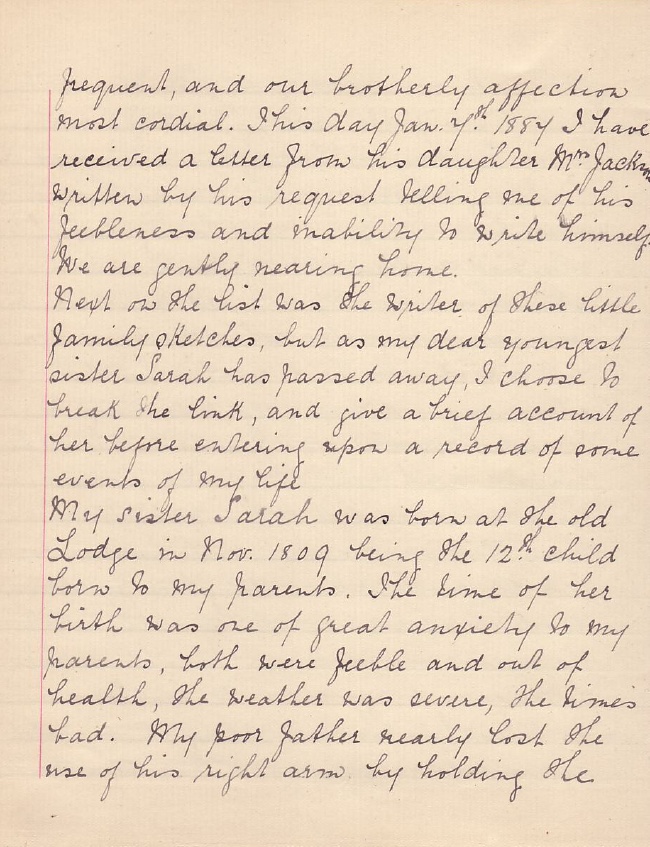 frequent, and our brotherly affection
most cordial. This day Jan. 7th 1884 I have
received a letter from his daughter Mrs Jackson
written by his request telling me of his
feebleness and inability to write himself.
We are gently nearing home.
Next on the list was the writer of these little
family sketches, but as my dear youngest
sister Sarah has passed away, I choose to
break the link, and give a brief account of
her before entering upon a record of some
events of my life
My sister Sarah was born at the old
Lodge in Nov. 1809 being the 12th child
born to my parents. The time of her
birth was one of great anxiety to my
parents, both were feeble and out of
health, the weather was severe, the times
bad. My poor father nearly lost the
use of his right arm by holding the